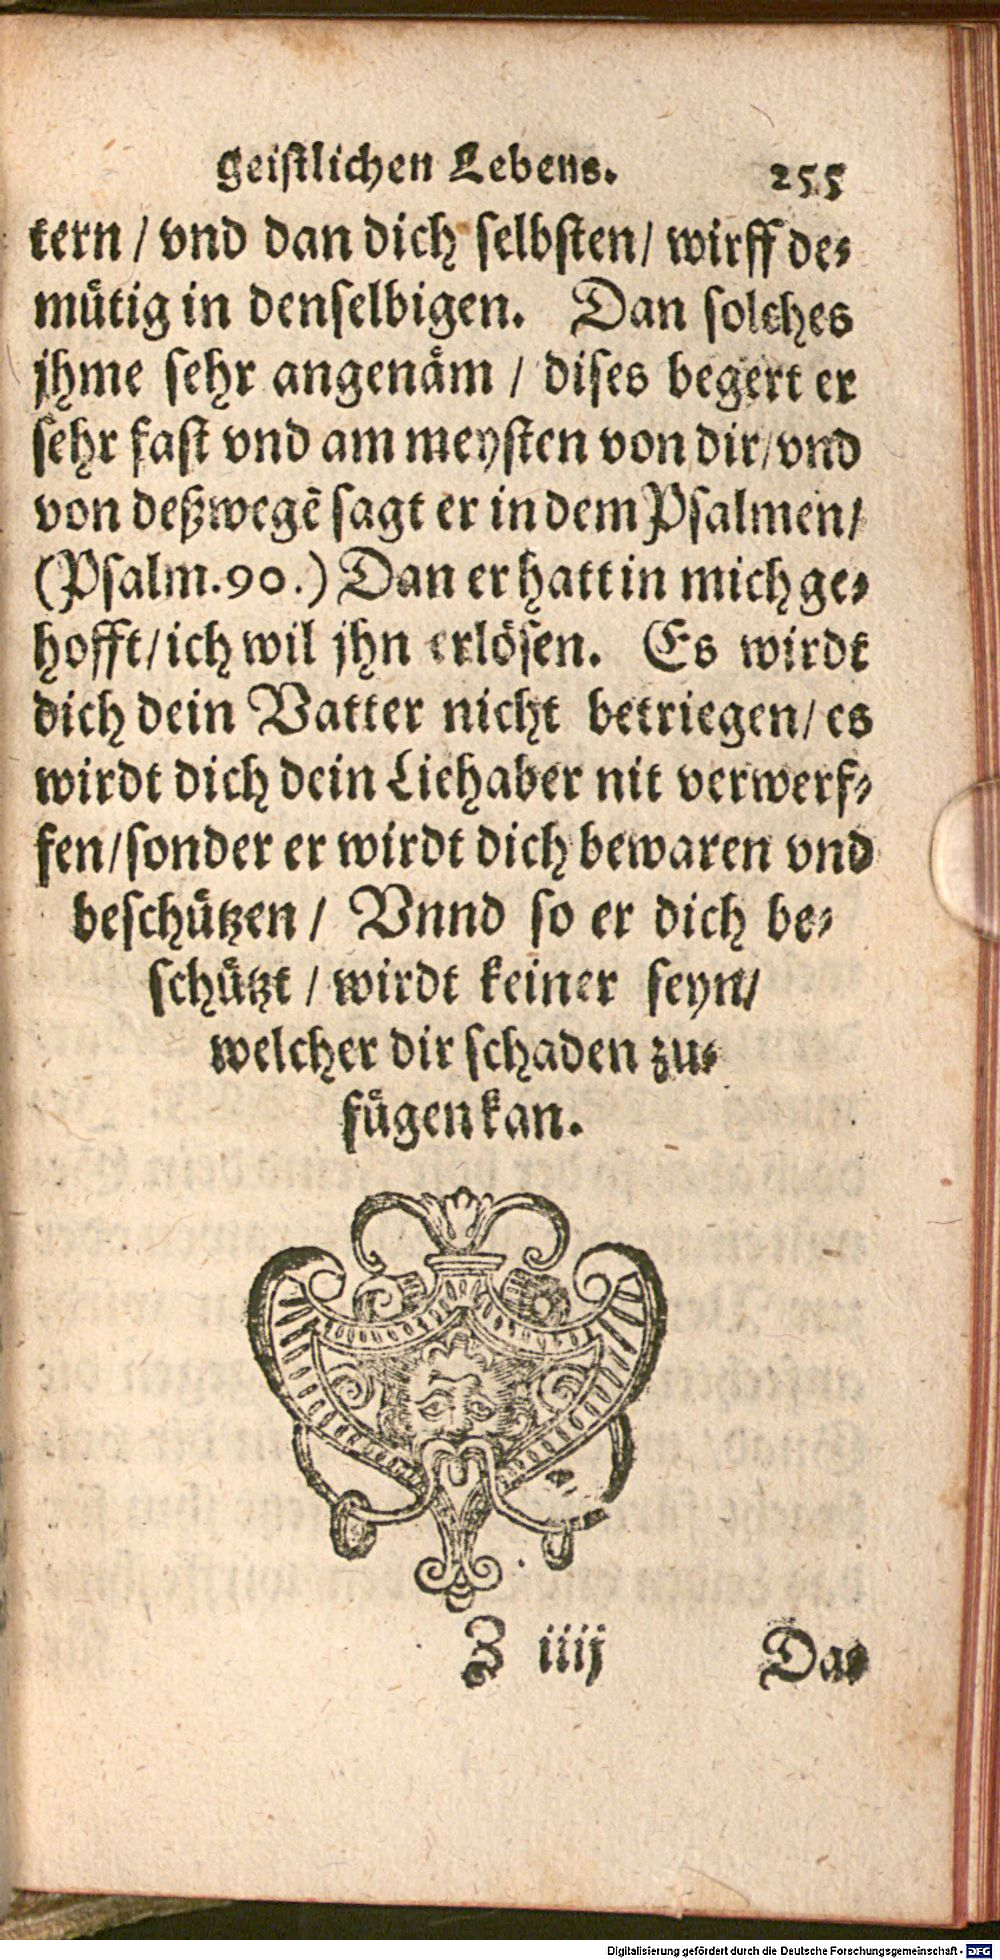 geiſtlichen Lebens. 255
tern / vnd dan dich ſelbſten / wirff de⸗
muͤtig in denſelbigen. Dan ſolches
jhme ſehr angenaͤm / diſes begert er
ſehr faſt vnd am meyſten von dir / vnd
von deßwegẽ ſagt er in dem Pſalmen /
(Pſalm. 90.) Dan er hatt in mich ge⸗
hofft / ich wil jhn erloͤſen. Es wirdt
dich dein Vatter nicht betriegen / es
wirdt dich dein Liehaber nit verwerf⸗
fen / ſonder er wirdt dich bewaren vnd
beſchuͤtzen / Vnnd ſo er dich be⸗
ſchuͤtzt / wirdt keiner ſeyn /
welcher dir ſchaden zu⸗
fuͤgen kan.
Z iiij Das
Digitalisierung gefördert durch die Deutsche Forschungsgemeinschaft - DFG